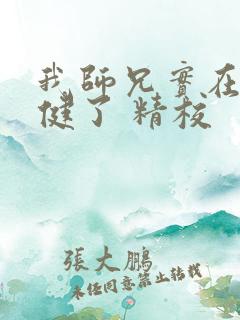 我師兄實在
健了 精校
張大鵬
未經同意禁止轉載